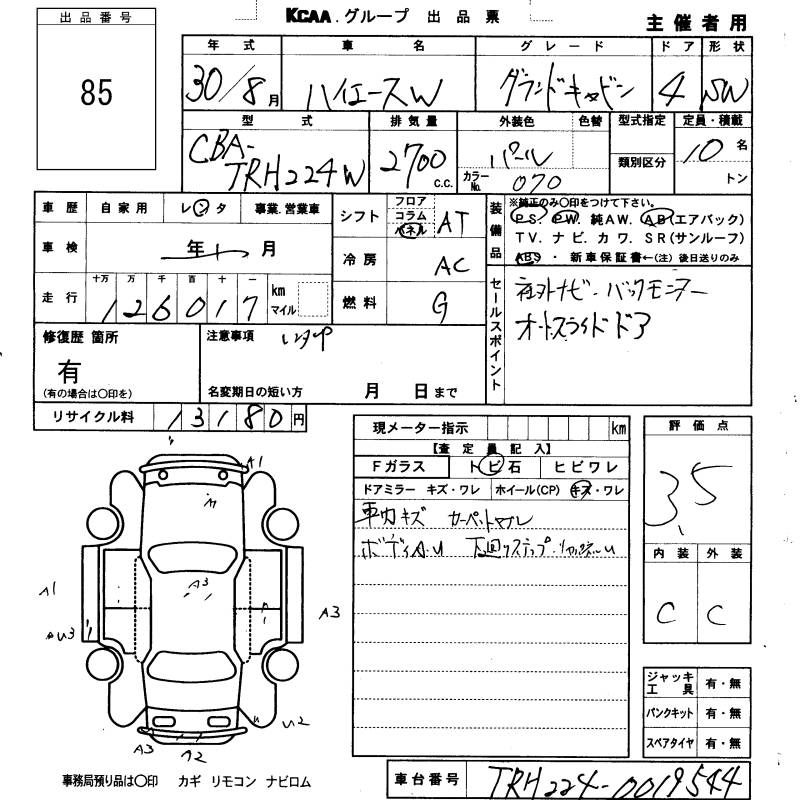 出品番号
85
KCAA.グループ 出品票
主催者用
年式 車名 グレード ドア 形状
30/8月 ハイエースW グランドキャビン 4 SW
型式 排気量 外装色 色替 型式指定 定員・積載
CBA-TRH224W 2700c.c. パール 類別区分 10名
カラーNo. 070 トン
車歴 自家用 レンタ 事業.営業車
車検 年 月
走行 十万 万 千 百 十 一
126017 km マイル
シフト フロア コラム パネル AT
冷房 AC
燃料 G
装備品
※純正のみ〇印をつけて下さい。
PS. PW. 純AW. AB(エアバック)
TV. ナビ. カワ. SR(サンルーフ)
ABS ・ 新車保証書←(注) 後日送りのみ
セールスポイント
社外ナビ・バックモニター
オートスライドドア
修復歴 箇所
有
(有の場合は〇印を)
注意事項 レンタUP
名変期日の短い方 月 日まで
リサイクル料 13180円
現メーター指示 km
【査定員記入】
Fガラス トビ石 ヒビワレ
ドアミラー キズ・ワレ ホイール(CP) キズ・ワレ
車内キズ カーペットヨゴレ
ボディA.U 下廻りステップ
評価点
3.5
内装 外装
C C
ジャッキ工具 有・無
パンクキット 有・無
スペアタイヤ 有・無
A1
A3
A1
A3
U3
U2
A3
A2
事務局預り品は〇印 カギ リモコン ナビロム
車台番号 TRH224-0019544